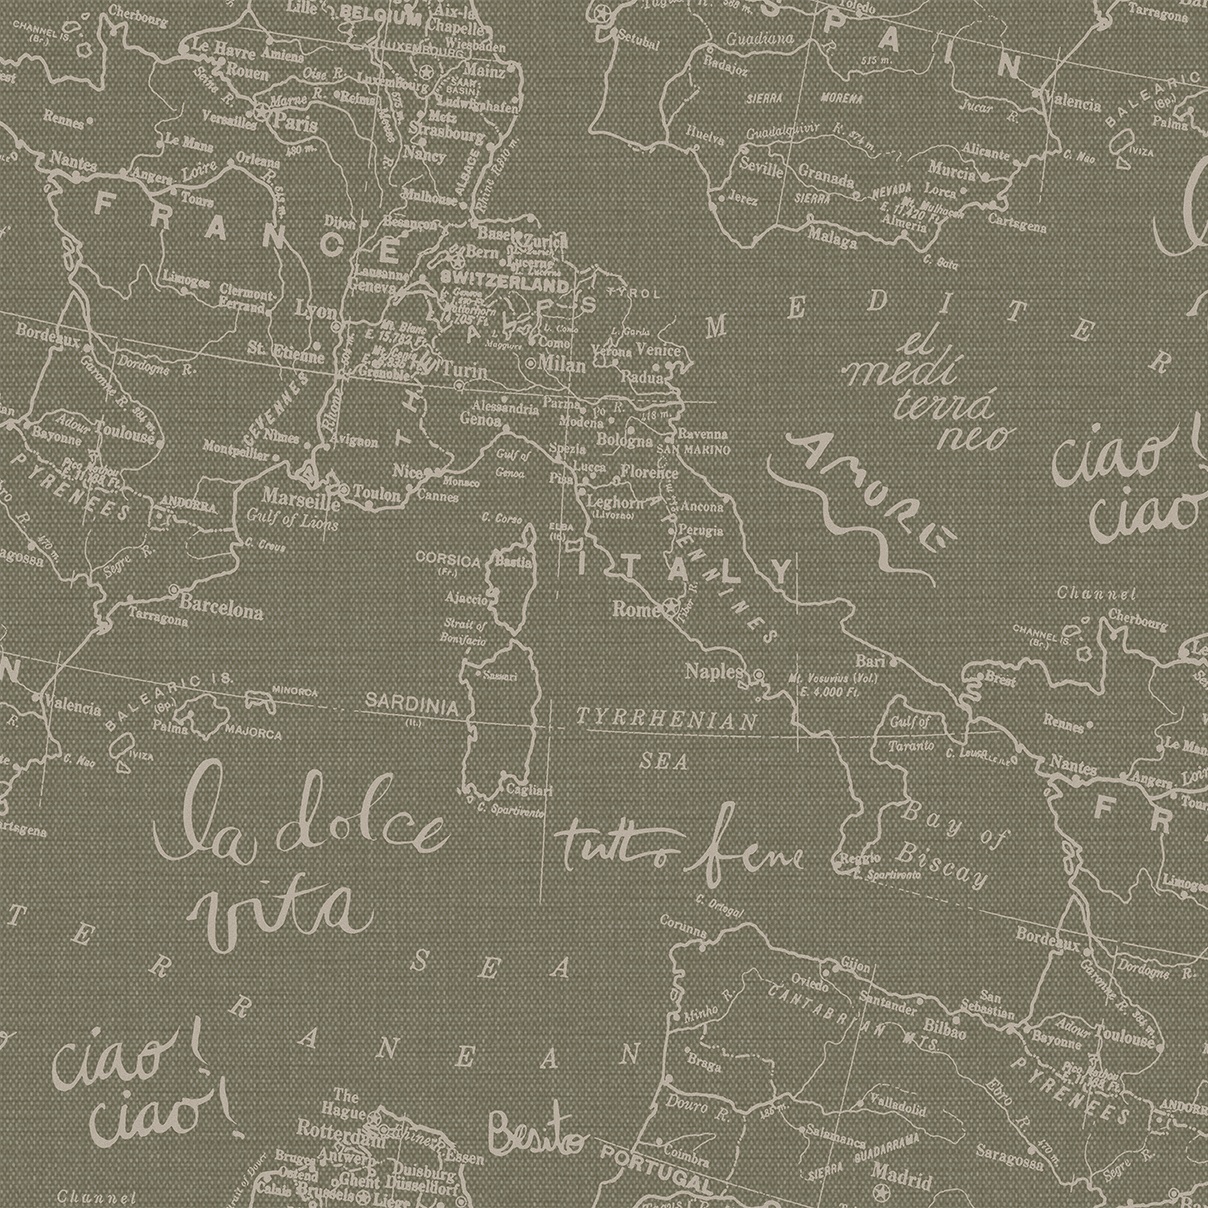 Cherbourg
CHANNEL IS.
(Br.)
Lille
BELGIUM
Aix-la
Chapelle
Wiesbaden
LUXEMBOURG
Le Havre
Amiens
Rouen
Oise R.
Luxembourg
SAAR
BASIN
Mainz
Seine R.
Marne R.
Reims
Ludwigshafen
Versailles
Paris
Metz
Strasbourg
Rennes
Le Mans
480 m.
Nancy
Nantes
Angers
Loire
Orleans
ALSACE
Tours
Mulhouse
FRANCE
Dijon
Besançon
Basel
Zurich
Bern
Lucerne
Lausanne
Geneva
SWITZERLAND
Limoges
Clermont-
Ferrand
Lyon
TYROL
Mt. Blanc
E. 15,782 Ft.
Bordeaux
Dordogne R.
St. Etienne
Grenoble
Turin
L. Como
Como
Milan
L. Garda
Verona
Venice
Padua
Garonne R.
CEVENNES
Rhone
Alessandria
Genoa
Parma
Po R.
418 m.
Modena
Bologna
Ravenna
SAN MARINO
Adour
Toulouse
Bayonne
Nimes
Avignon
Montpellier
Spezia
Gulf of
Genoa
Nice
Monaco
Lucca
Florence
Pisa
PYRENEES
ANDORRA
Marseille
Toulon
Cannes
Leghorn
(Livorno)
Ancona
Gulf of Lions
C. Creus
C. Corso
ELBA
(It.)
Perugia
470 m.
Segre R.
CORSICA
(Fr.)
Bastia
ITALY
APENNINES
Barcelona
Tarragona
Ajaccio
Rome
Strait of
Bonifacio
Naples
Bari
Mt. Vesuvius (Vol.)
E. 4,000 Ft.
Valencia
BALEARIC IS.
(Sp.)
Palma
MINORCA
MAJORCA
IVIZA
C. Nao
SARDINIA
(It.)
Sassari
TYRRHENIAN
SEA
Gulf of
Taranto
Cagliari
C. Spartivento
la dolce
vita
tutto bene
Reggio
C. Spartivento
Setubal
Badajoz
Guadiana
515 m.
SPAIN
Toledo
Tarragona
SIERRA MORENA
Jucar R.
Valencia
BALEARIC
(Sp.)
Palma
IVIZA
Huelva
Guadalquivir R. 374 m.
Seville
Granada
Alicante
C. Nao
Murcia
Jerez
SIERRA
NEVADA
Lorca
Mt. Mulhacen
E. 11,420 Ft.
Almeria
Cartagena
Malaga
C. Gata
MEDITER
el
medi
terrá
neo
AMORE
ciao!
ciao
Channel
Cherbourg
CHANNEL IS.
(Br.)
Brest
Rennes
Le Mans
Nantes
Angers
Loire
Tours
FR
Bay of
Biscay
Limoges
C. Ortegal
Corunna
Gijon
Oviedo
Santander
CANTABRIAN MTS.
Bilbao
San
Sebastian
Bordeaux
Dordogne R.
Garonne R.
Minho R.
Braga
Douro R.
Valladolid
Salamanca
Coimbra
PORTUGAL
SIERRA GUADARRAMA
Madrid
Ebro R.
470 m.
Saragossa
Segre R.
Adour
Bayonne
Toulouse
PYRENEES
TERRANEAN
SEA
ciao!
ciao!
Besito
The
Hague
Rotterdam
Rhine
Essen
Bruges
Antwerp
Duisburg
Ostend
Ghent
Dusseldorf
Calais
Brussels
Liege
Channel